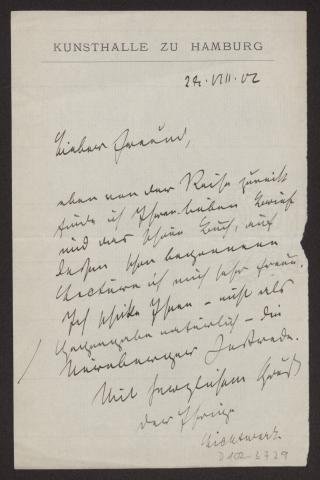 KUNSTHALLE ZU HAMBURG
24. VIII. 02
Lieber Freund,
eben von der Reise zurück
finde ich Ihren lieben Brief
und das schöne Buch, auf
dessen schon begonnene
Lectüre ich mich sehr freue.
Ich schicke Ihnen – nicht als
Gegengabe natürlich – die
Nürnberger Festrede.
Mit herzlichem Gruß
der Ihrige
Lichtwark